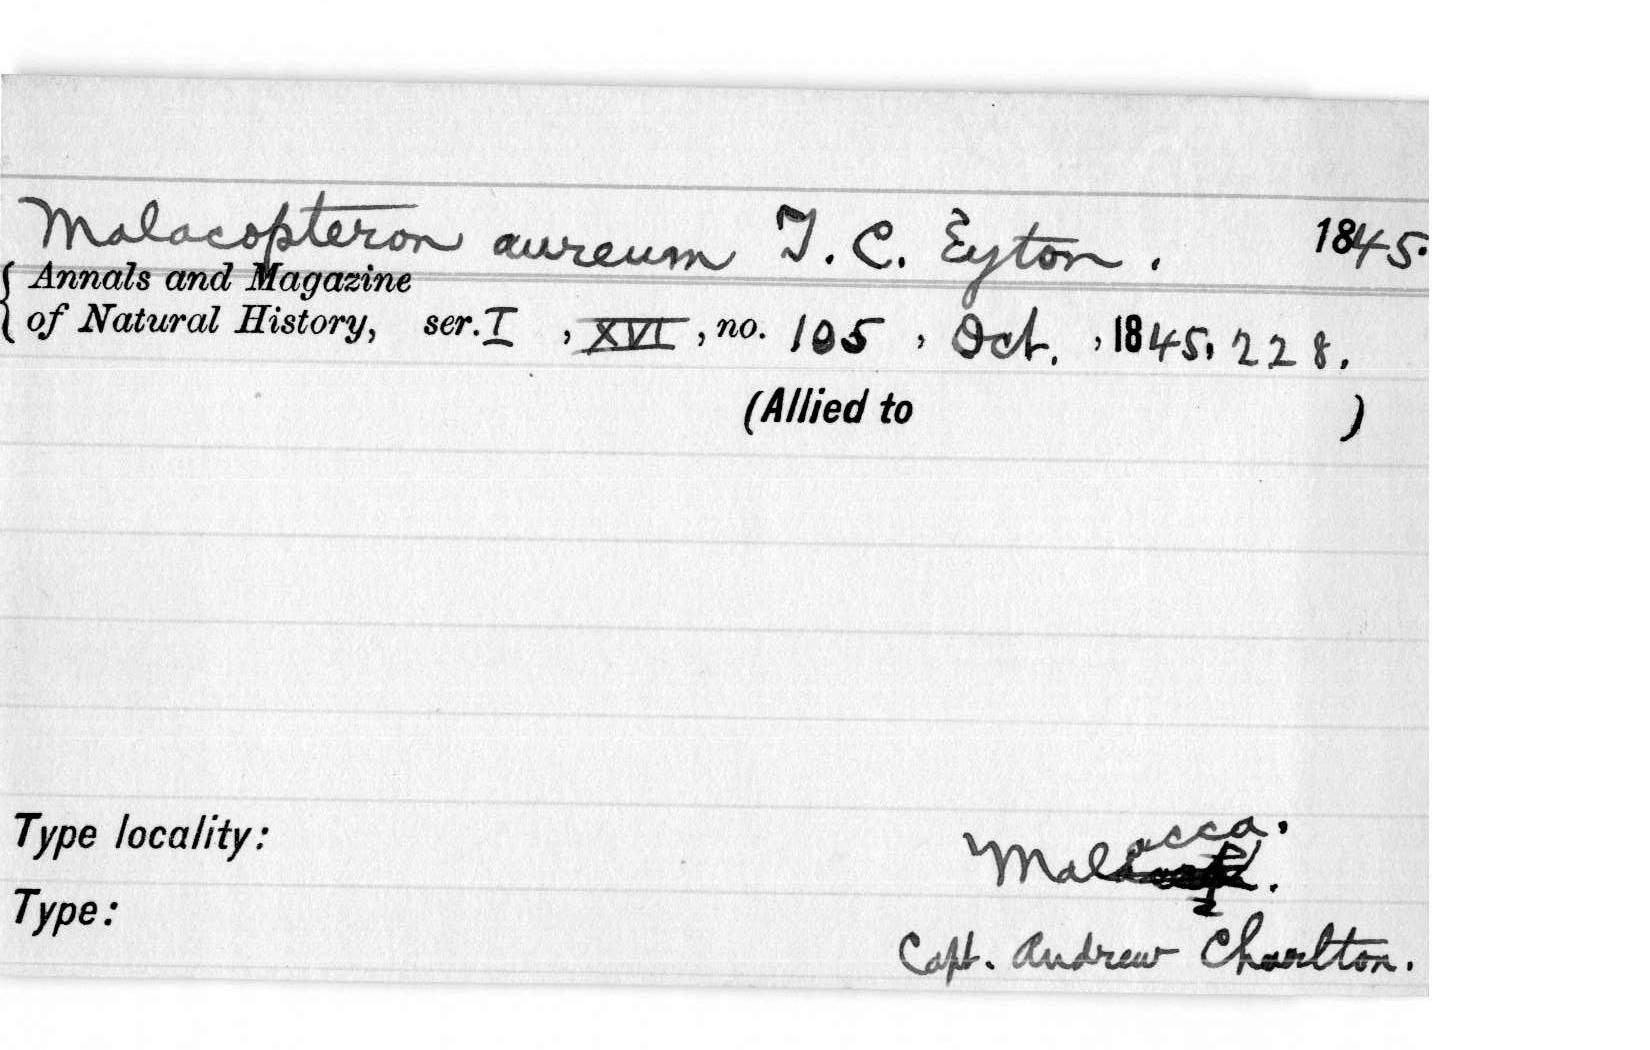 Malacopteron aureum T. C. Eyton. 1845.
{ Annals and Magazine
of Natural History, ser. I, XVI, no. 105, Oct., 1845, 228.
(Allied to )
Type locality: Malacca.
Type:
Capt. Andrew Charlton.